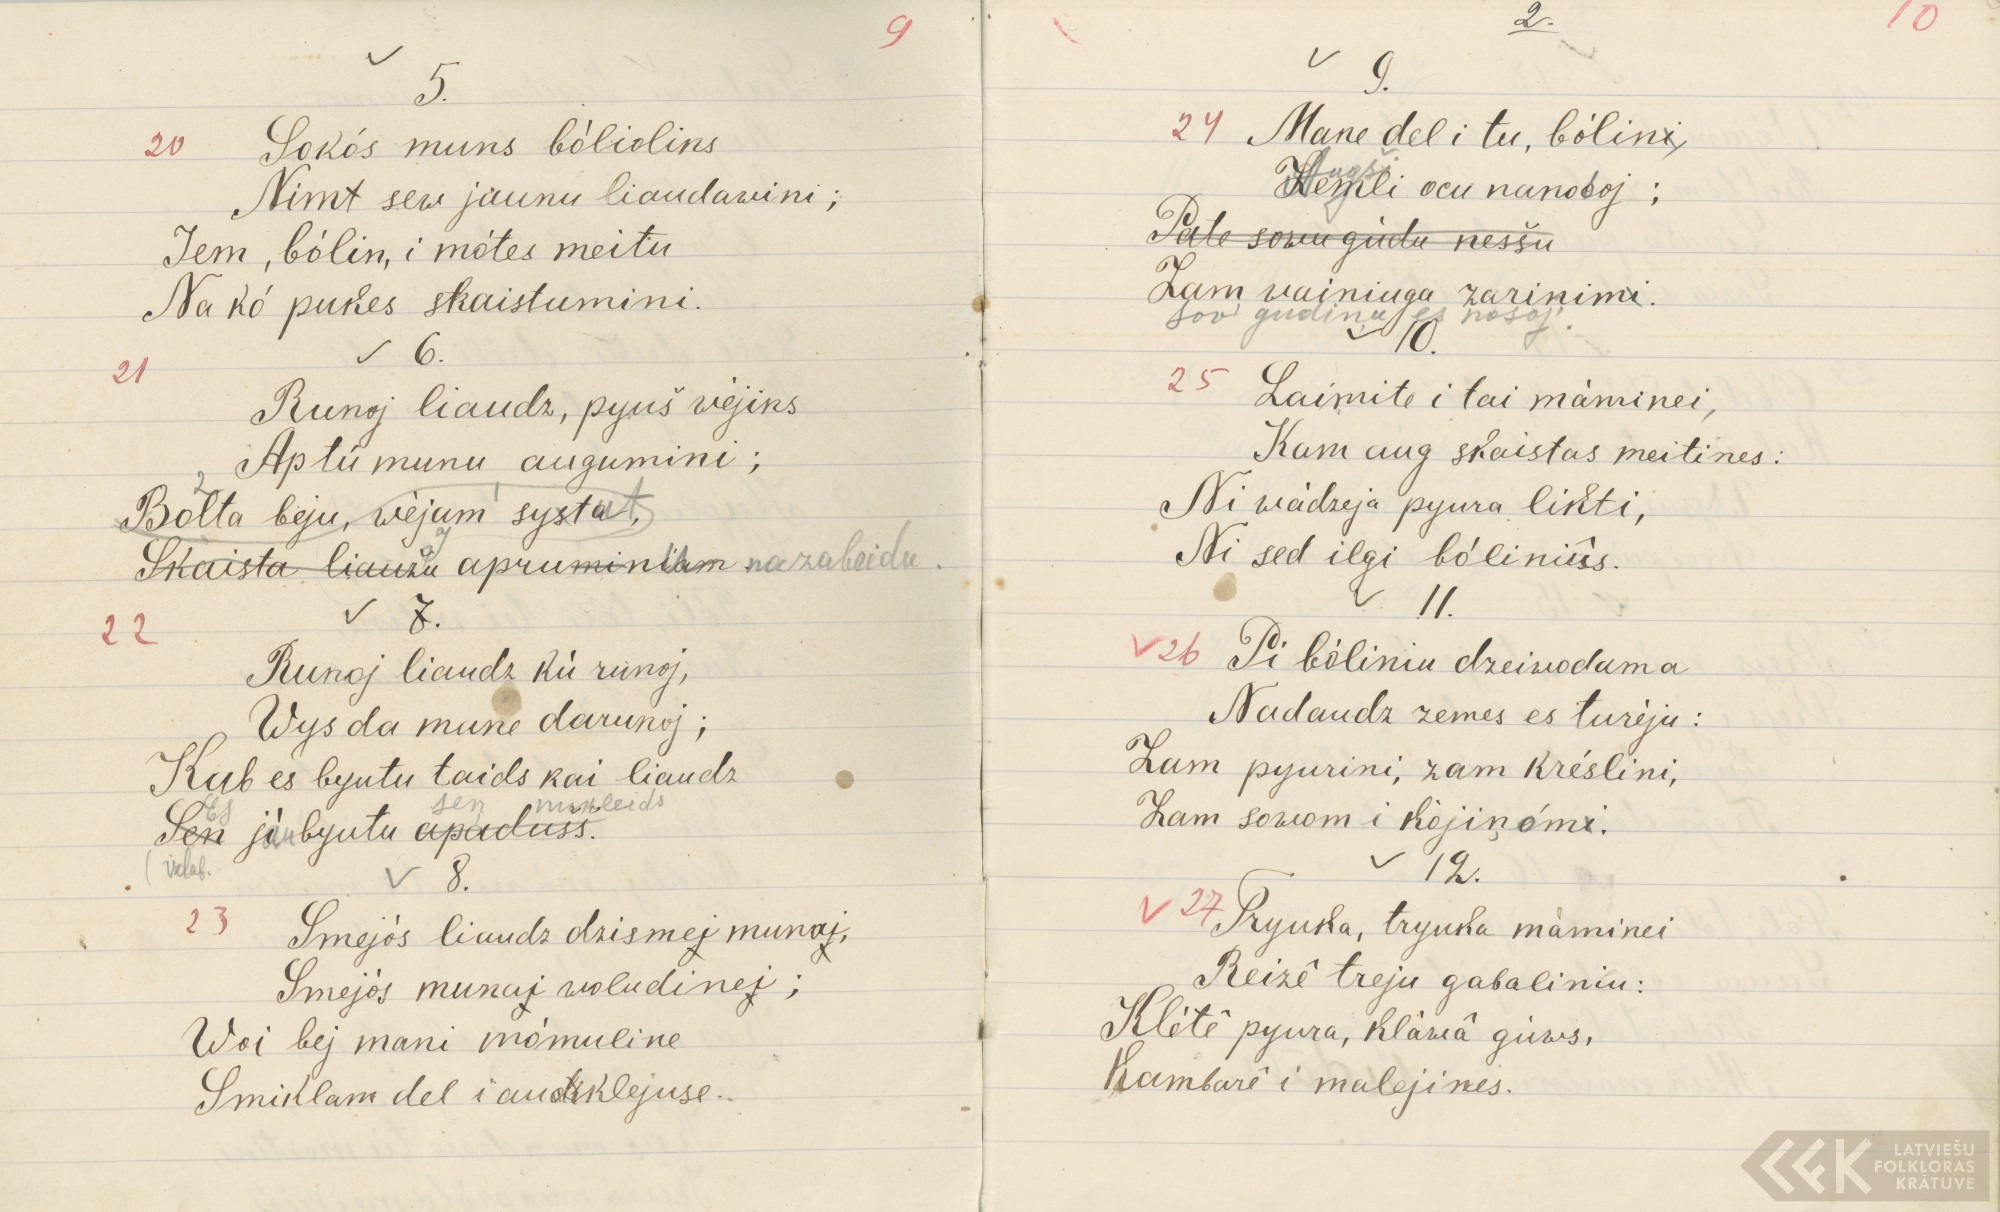 9
5.
20 Sokós muns bóliolins
Nimt sew jaunu liaudawini;
Jem, bólin, i mótes meitu
Na kó pukes skaistumini.
6.
21
Runoj liaudz, pyuš wėjins
Aptú munu augumini;
Bolta beju, wėjam systa,
Skaista liaužu apruminam nazabeidu.
7.
22
Runoj liaudz kú runoj,
Wys da mane darunoj;
Kab es byutu taids kai liaudz
Es sen nukleids
Sen jó byutu apaduss.
(izlab.
8.
23 Smejós liaudz dzismej munaj,
Smejós munaj woludinej;
Woi bej mani mómuline
Smiklam del i auklejuse.
2. 10
9.
24 Mane del i tu, bólini,
Augši
ocu nanoboj;
Pate sowu gúdu nesšu
Zam wainiuga zarinimi.
sov gudiņu es nosoj.
10.
25 Laimite i tai máminei,
Kam aug skaistas meitines:
Ni wádzeja pyura likti,
Ni sed ilgi bóliniûs.
11.
26 Pi bóliniu dzeiwodama
Nadaudz zemes es turėju:
Zam pyurini, zam krėslini,
Zam sowom i kójiņómi.
12.
27 Tryuka, tryuka máminei
Reizê treju gabaliniu:
Klėtê pyura, kláwâ gúws,
Kambarê i malejines.
LATVIEŠU
FOLKLORAS
KRĀTUVE